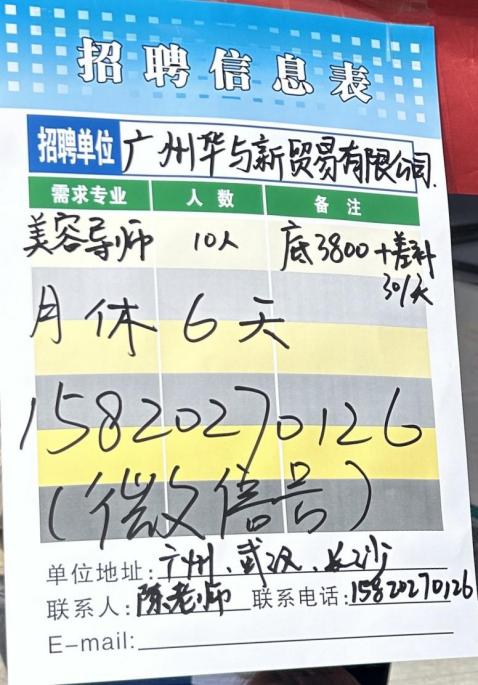 招聘信息表
招聘单位 广州华与新贸易有限公司.
需求专业 人数 备注
美容导师 10人 底3800+差补
30/天
月休6天
15820270126
(微信号)
单位地址:广州、武汉、长沙
联系人:陈老师 联系电话:15820270126
E-mail: